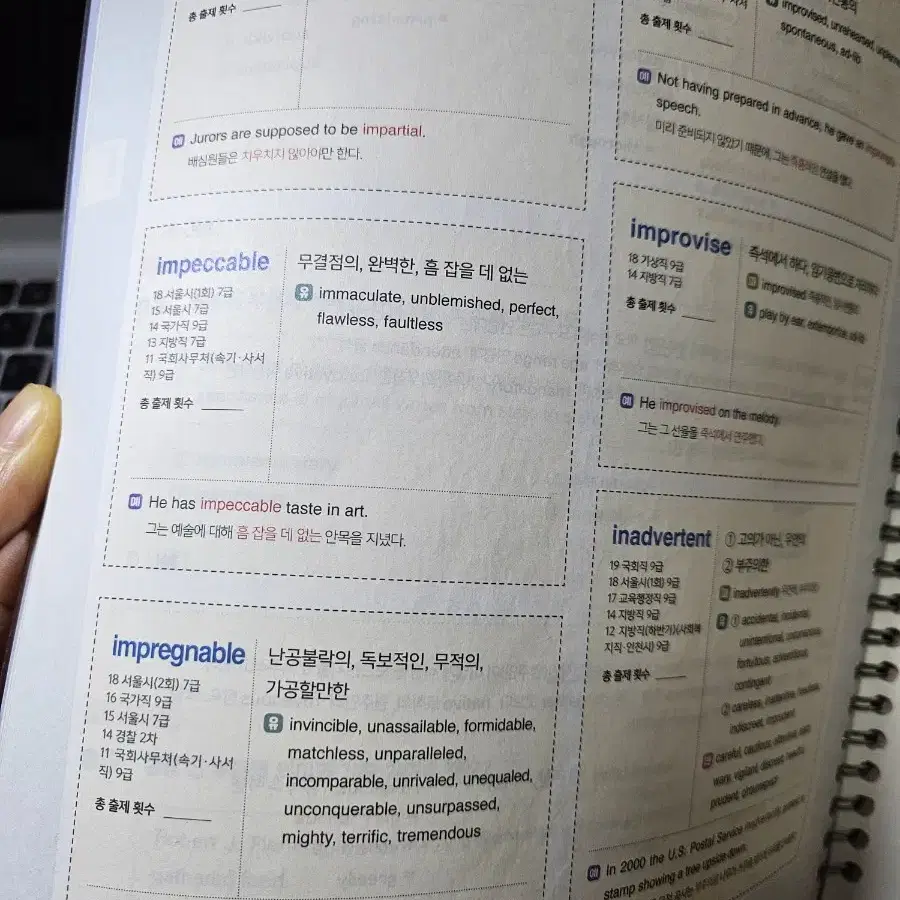 총 출제 횟수
예 Jurors are supposed to be impartial.
배심원들은 치우치지 않아야만 한다.
impeccable
18 서울시(1회) 7급
15 서울시 7급
14 국가직 9급
13 지방직 7급
11 국회사무처(속기·사서
직) 9급
총 출제 횟수
무결점의, 완벽한, 흠 잡을 데 없는
유 immaculate, unblemished, perfect,
flawless, faultless
예 He has impeccable taste in art.
그는 예술에 대해 흠 잡을 데 없는 안목을 지녔다.
impregnable
18 서울시(2회) 7급
16 국가직 9급
15 서울시 7급
14 경찰 2차
11 국회사무처(속기·사서
직) 9급
총 출제 횟수
난공불락의, 독보적인, 무적의,
가공할만한
유 invincible, unassailable, formidable,
matchless, unparalleled,
incomparable, unrivaled, unequaled,
unconquerable, unsurpassed,
mighty, terrific, tremendous
총 출제 횟수
improvised, unrehearsed,
spontaneous, ad-lib
예 Not having prepared in advance, he gave an impromptu
speech.
미리 준비되지 않았기 때문에, 그는 즉흥적인 연설을 했다.
improvise
18 기상직 9급
14 지방직 7급
총 출제 횟수
즉석에서 하다,
improvised
play by ear, extemporize, ad-lib
예 He improvised on the melody.
그는 그 선율을 즉석에서 연주했다.
inadvertent
19 국회직 9급
18 서울시(1회) 9급
17 교육행정직 9급
14 지방직 9급
12 지방직(하반기)(사회복
지직·인천시) 9급
총 출제 횟수
① 고의가 아닌, 우연의
② 부주의한
inadvertently
① accidental, incidental,
unintentional,
fortuitous,
contingent
② careless,
indiscreet, imprudent
careful, cautious, attentive,
wary, vigilant, discreet, heedful,
prudent, circumspect
예 In 2000 the U.S. Postal Service inadvertently
stamp showing a tree upside down.